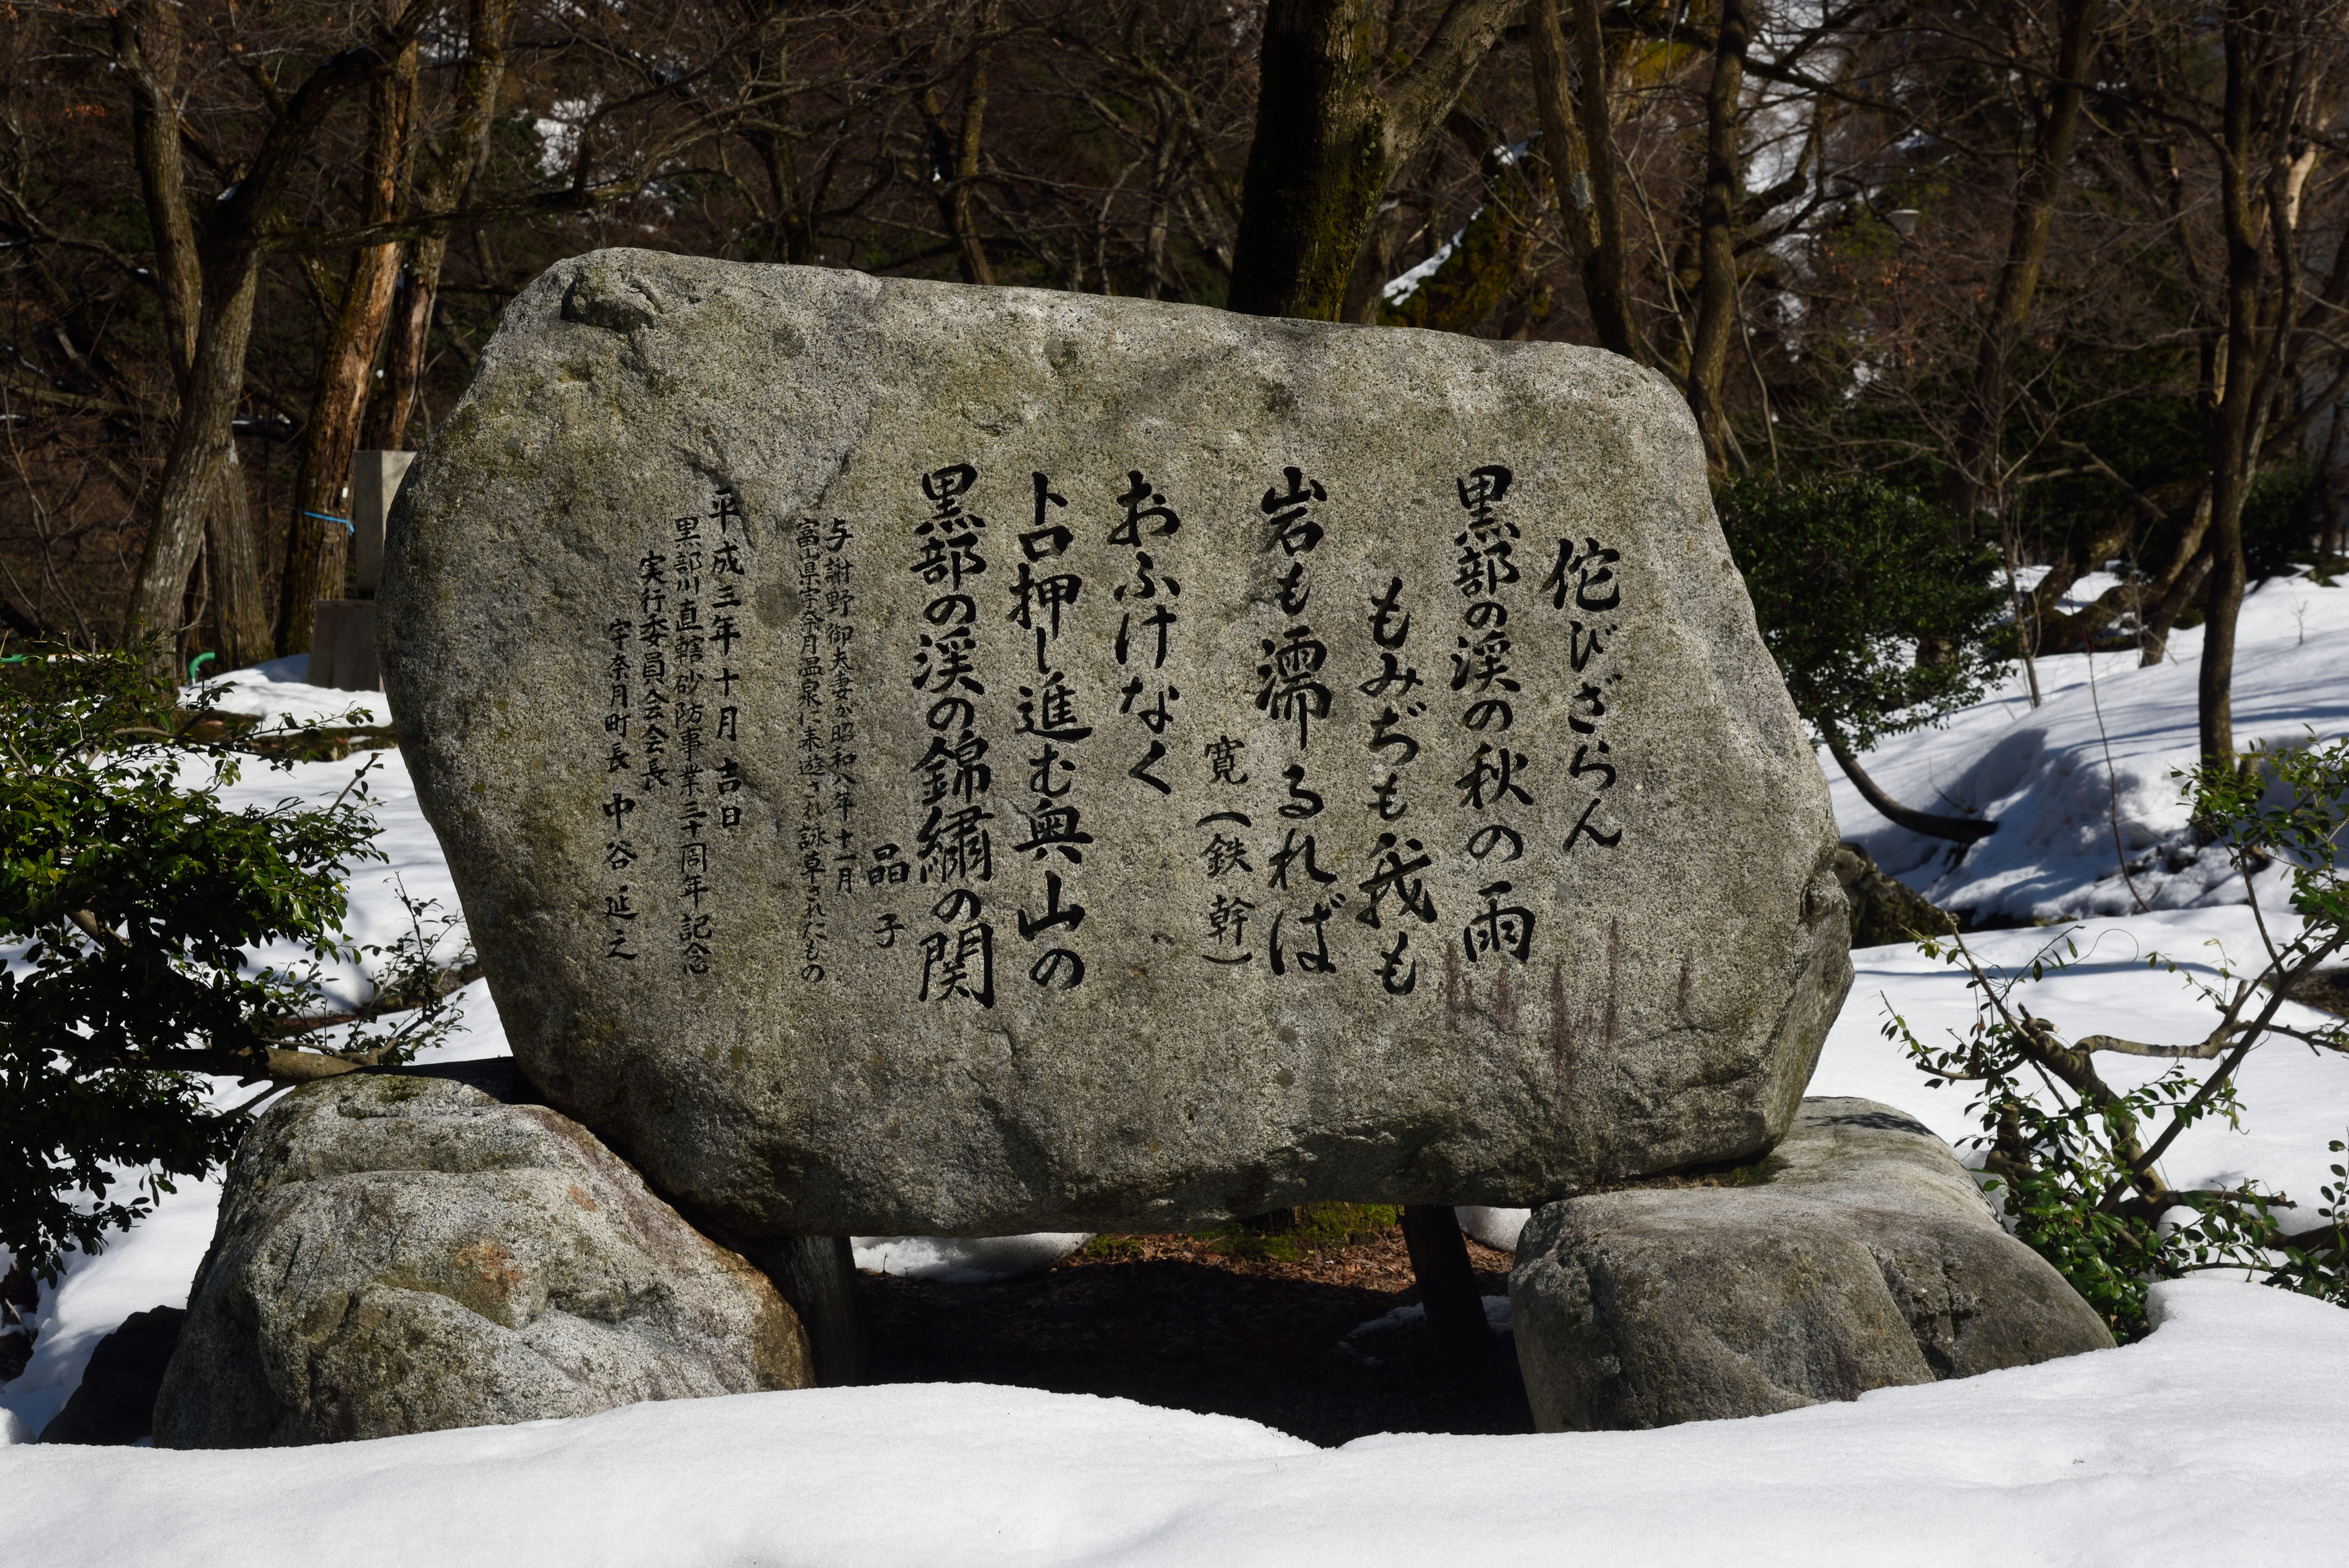 佗びざらん
黒部の渓の秋の雨
もみぢも我も
岩も濡るれば
寛(鉄幹)
おふけなく
トロ押し進む奥山の
黒部の渓の錦繍の関
晶子
与謝野御夫妻が昭和八年十一月
富山県宇奈月温泉に来遊され詠草されたもの
平成三年十月吉日
黒部川直轄砂防事業三十周年記念
実行委員会会長
宇奈月町長 中谷延之